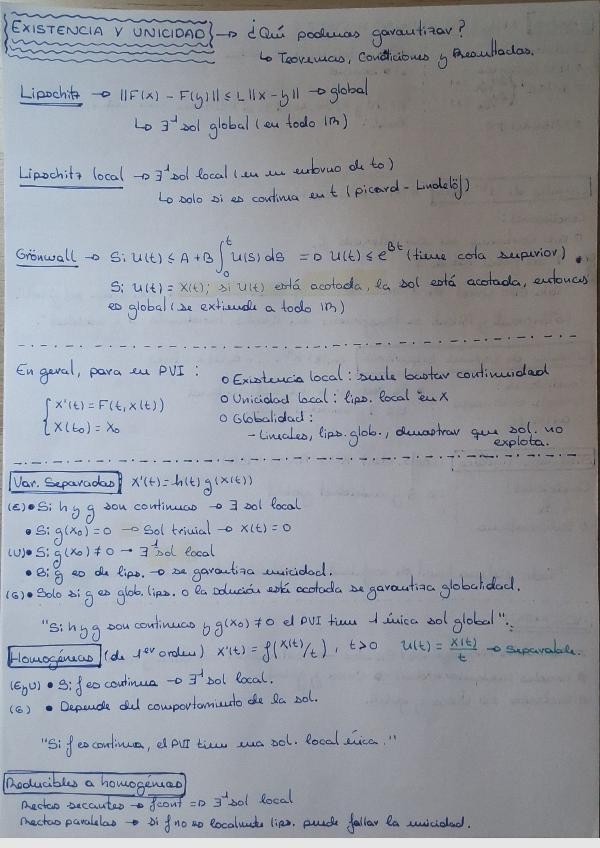 EXISTENCIA Y UNICIDAD → ¿Qué podemos garantizar?
↳ Teoremas, Condiciones y Resultados.
Lipschitz → ||F(x) - F(y)|| ≤ L||x - y|| → global
↳ ∃¹ sol global (en todo ℝ)
Lipschitz local → ∃¹ sol local (en un entorno de t₀)
↳ solo si es continua en t (picard - Lindelöf)
Grönwall → Si U(t) ≤ A + B ∫₀ᵗ U(s) ds ⇒ U(t) ≤ e^{Bt} (tiene cota superior).
Si U(t) = X(t); si U(t) está acotada, la sol está acotada, entonces
es global (se extiende a todo ℝ)
En geral, para en PVI :
{ X'(t) = F(t, x(t))
X(t₀) = X₀
o Existencia local : suele bastar continuidad
o Unicidad local : lips. local en X
o Globalidad :
- Lineales, lips. glob., demostrar que sol. no
explota.
Var. Separadas X'(t) = h(t) g(x(t))
(E) • Si h y g son continuas → ∃ sol local
• Si g(x₀) = 0 → Sol trivial → x(t) = 0
(U) • Si g(x₀) ≠ 0 → ∃¹ sol local
• Si g es de lips. → se garantiza unicidad.
(G) • Solo si g es glob. lips. o la solución está acotada se garantiza globalidad.
"Si h y g son continuas y g(x₀) ≠ 0 el PVI tiene 1 única sol global".
Homogéneas (de 1er orden) X'(t) = f(x(t)/t), t > 0 U(t) = x(t)/t → separable.
(E y U) • Si f es continua → ∃¹ sol local.
(G) • Depende del comportamiento de la sol.
"Si f es continua, el PVI tiene una sol. local única."
Reducibles a homogéneas
Rectas secantes → f cont ⇒ ∃¹ sol local
Rectas paralelas → si f no es localmente lips. puede fallar la unicidad.